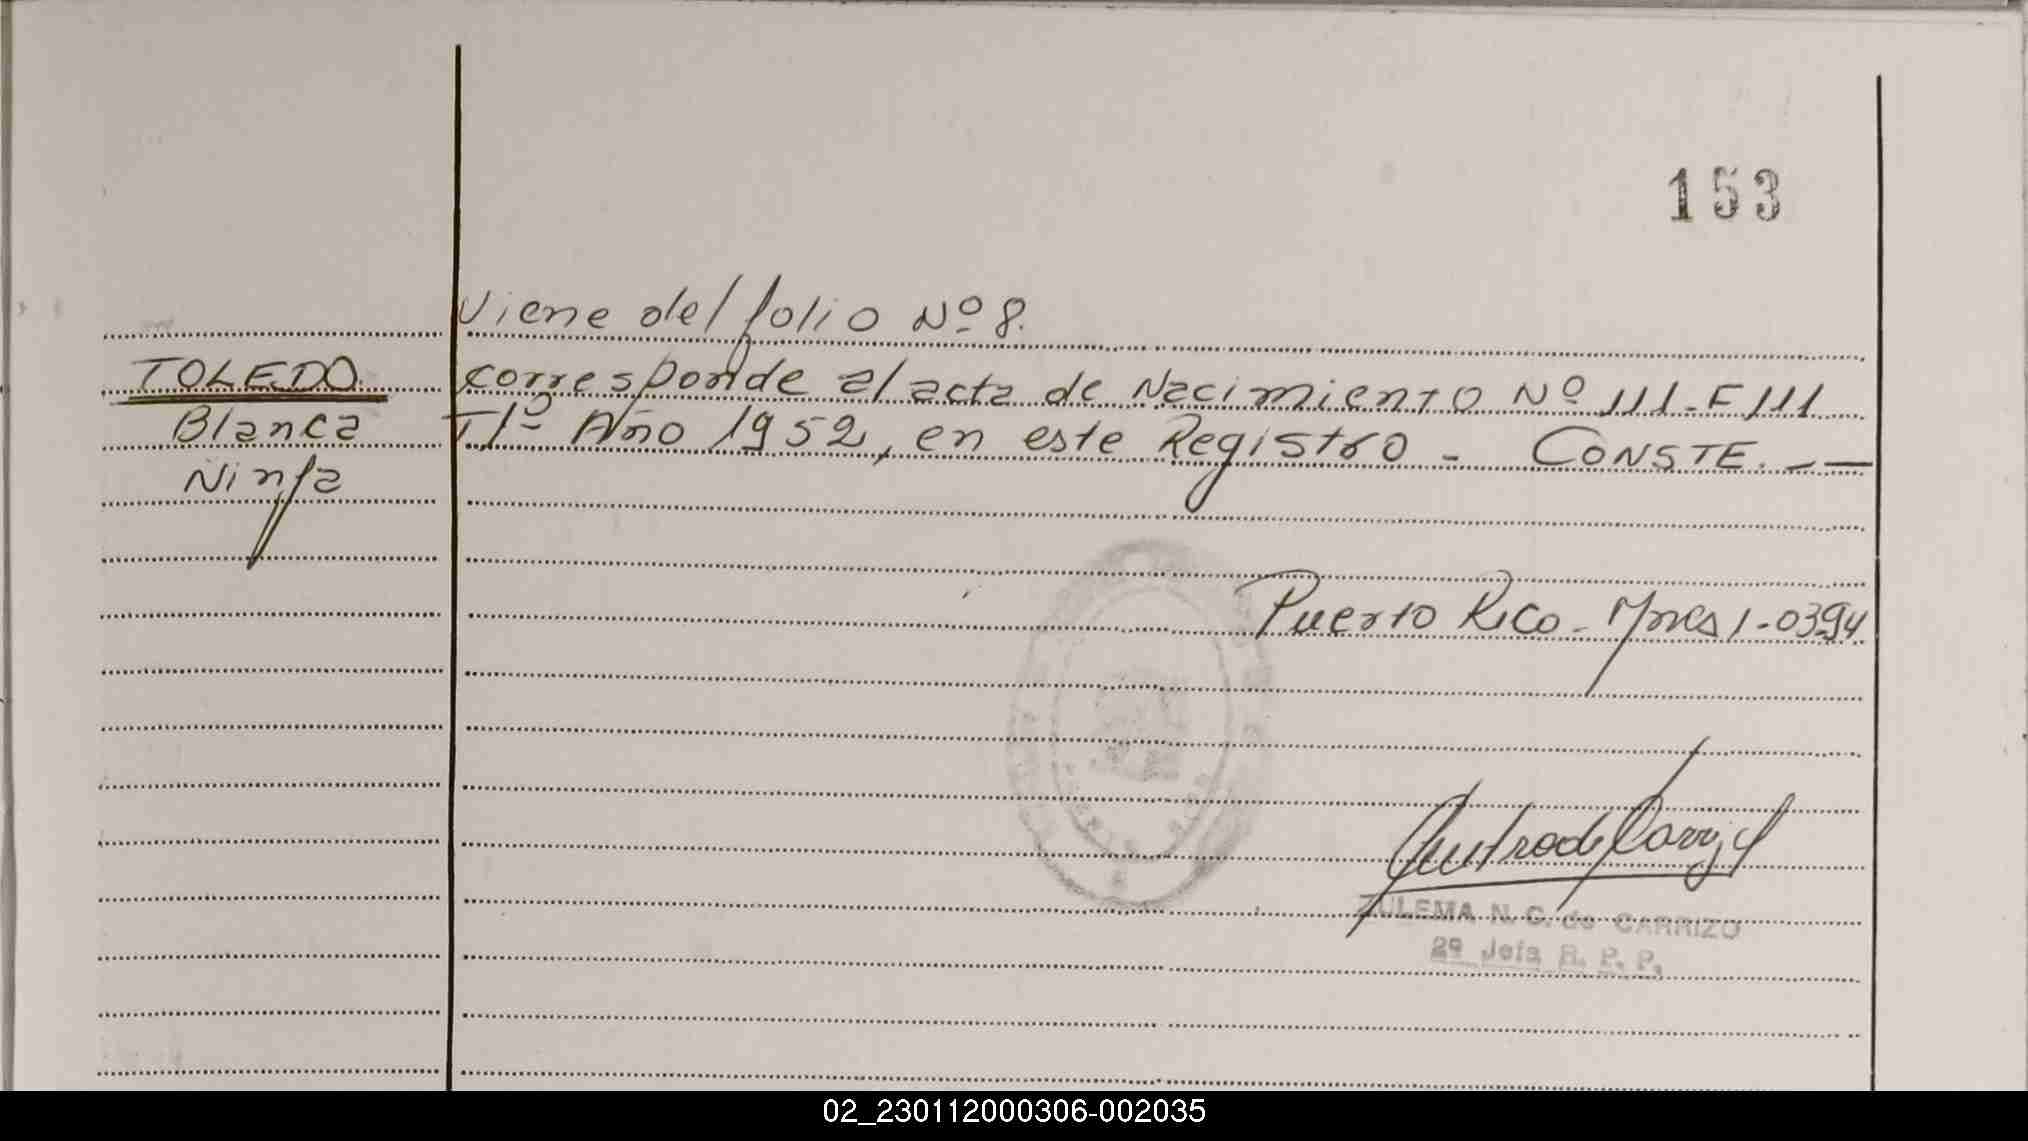 153
Viene del folio Nº 8.
TOLEDO. corresponde al acta de Nacimiento Nº 111-F111
Blanca Tº 1º Año 1952, en este Registro - CONSTE. - —
Ninfa
Puerto Rico - Mnes 1-03-94
ZULEMA N. C. de CARRIZO
2º Jefa R. P. P.
02_230112000306-002035